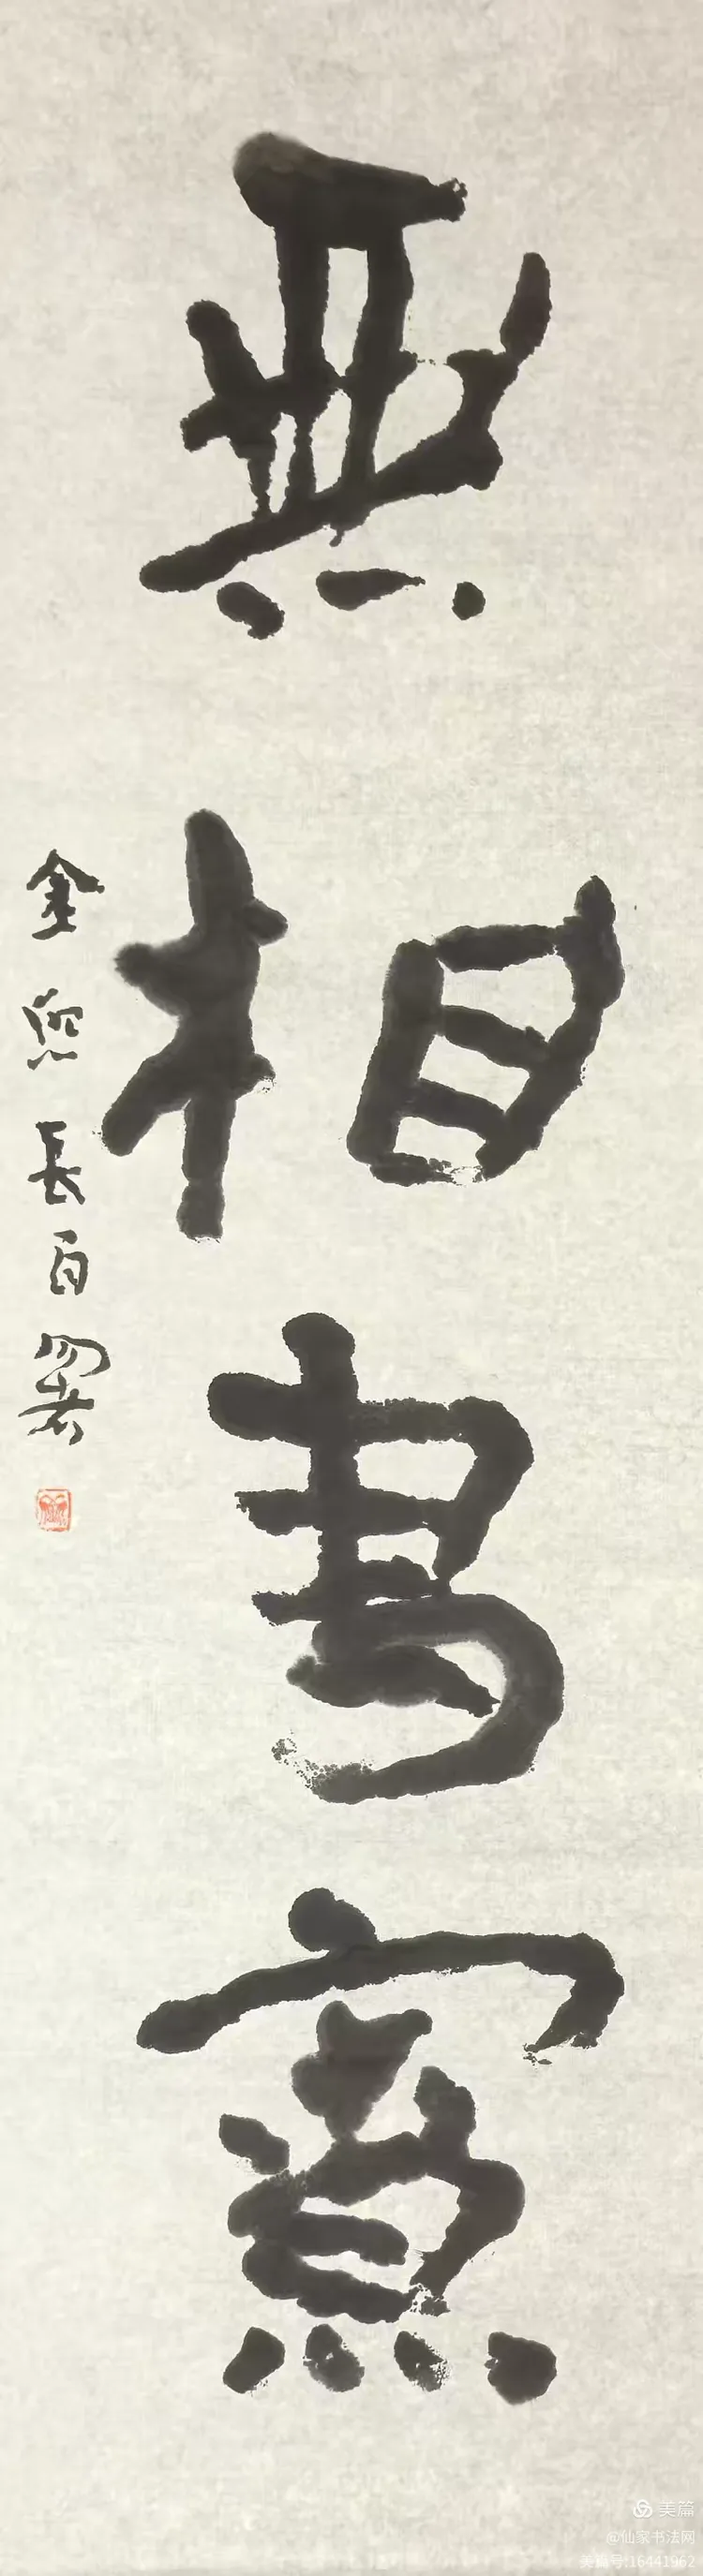 無相書寮
金熙長自署
美篇
@仙家书法网
美篇号:16441962